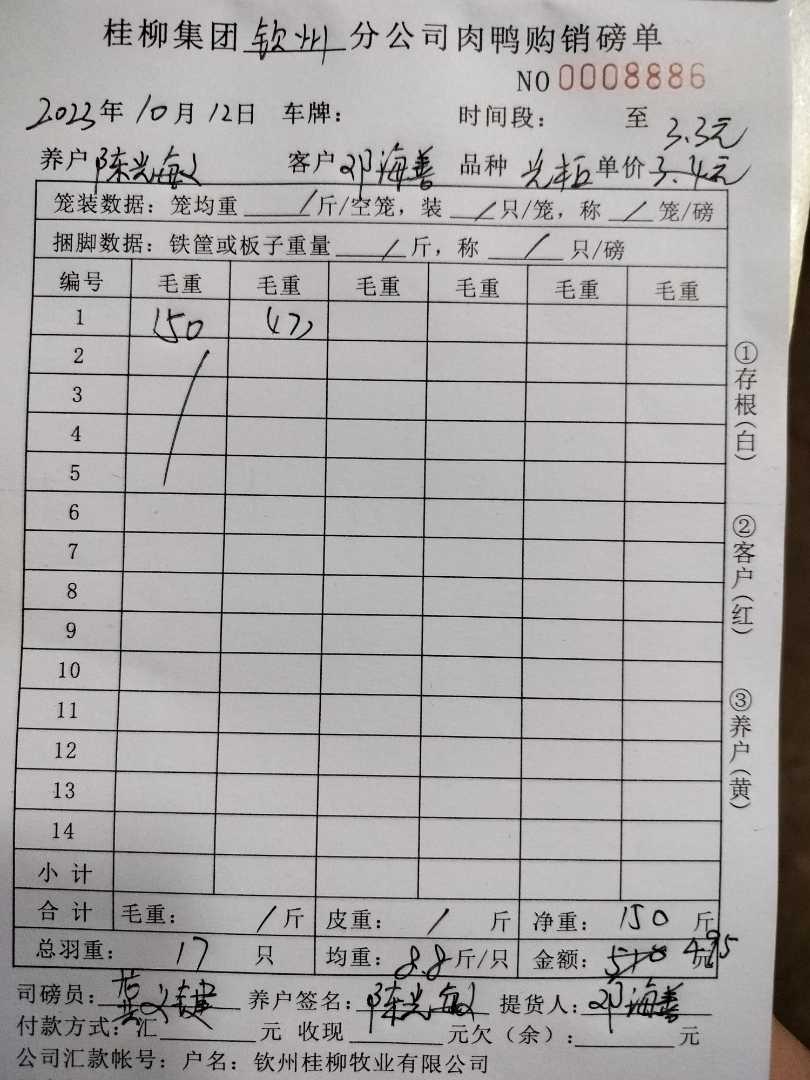 桂柳集团 钦州 分公司肉鸭购销磅单
NO 0008886
2023年10月12日 车牌： 时间段： 至
3.3元
养户 陈兴敏 客户 邓海善 品种 单价 3.4元
笼装数据：笼均重 / 斤/空笼，装 / 只/笼，称 / 笼/磅
捆脚数据：铁筐或板子重量 / 斤，称 / 只/磅
编号 毛重 毛重 毛重 毛重 毛重 毛重
1 150 (17)
2
3
4
5
6
7
8
9
10
11
12
13
14
小计
合计 毛重： / 斤 皮重： / 斤 净重： 150 斤
总羽重： 17 只 均重： 8.8 斤/只 金额： 510 495 元
司磅员： 养户签名： 陈兴敏 提货人： 邓海善
付款方式：汇 元 收现 元欠（余）： 元
公司汇款帐号：户名：钦州桂柳牧业有限公司
①存根(白)
②客户(红)
③养户(黄)